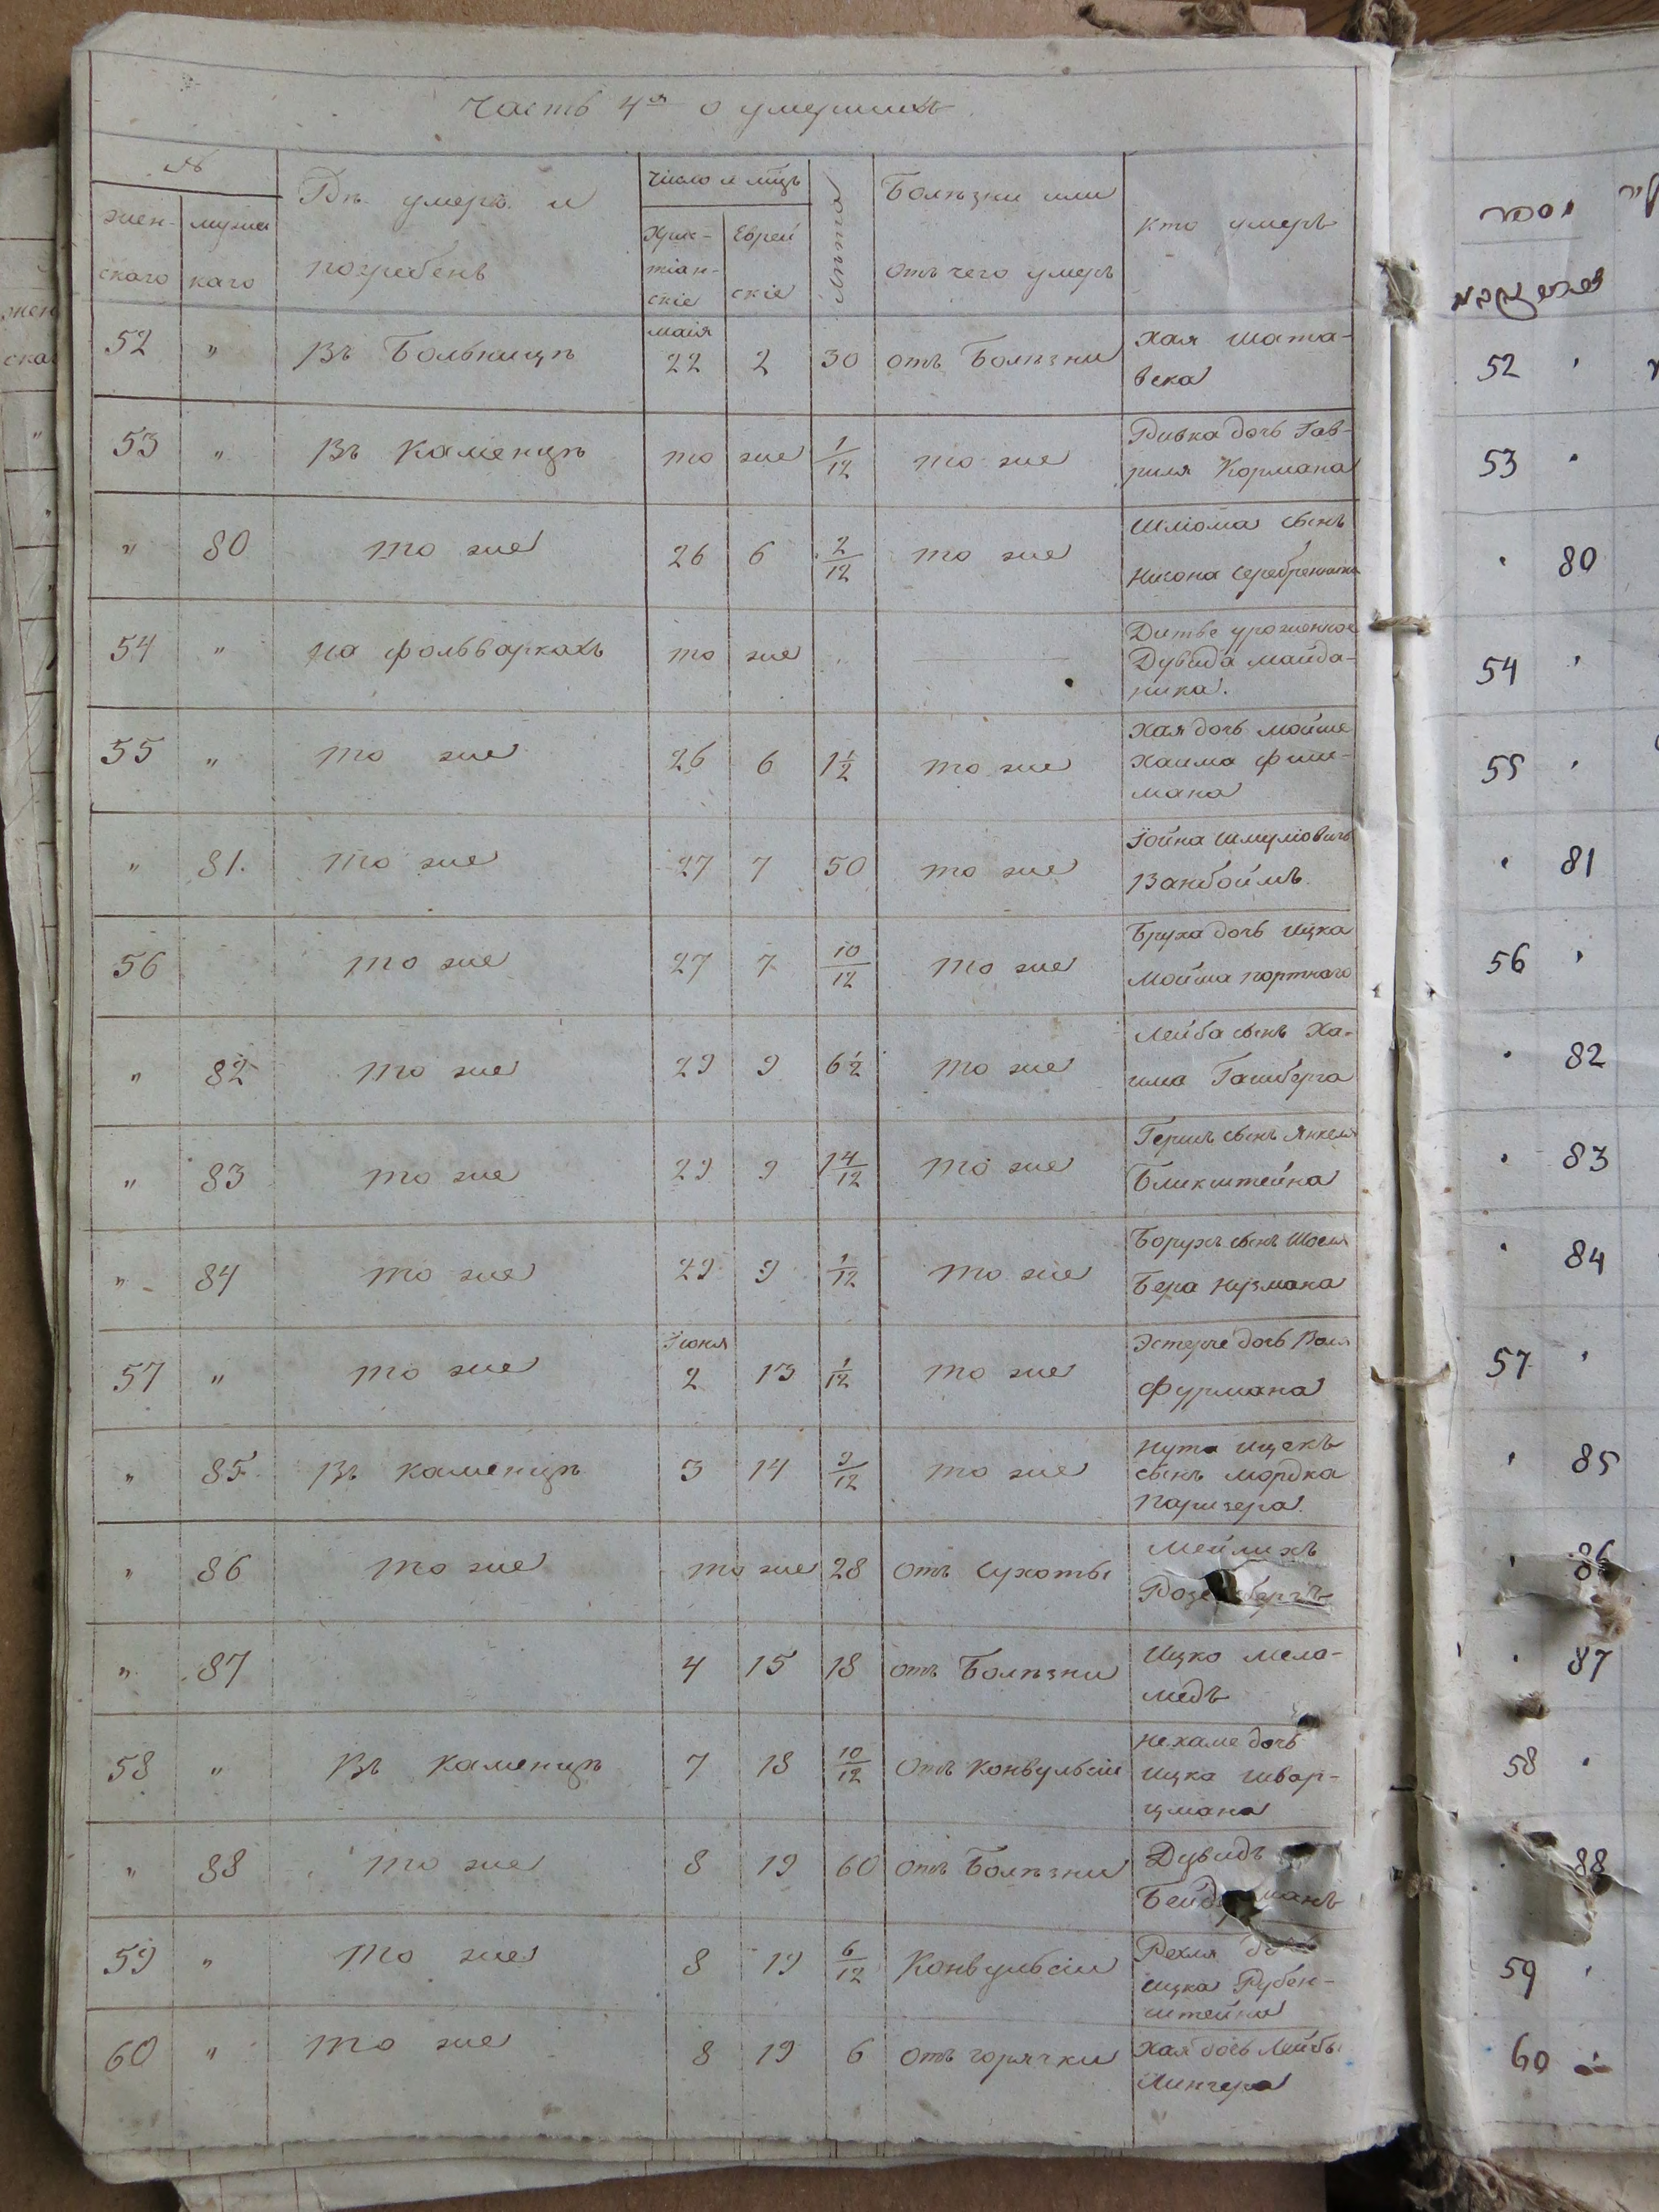 Часть 4я о умершихъ
№
Гдѣ умеръ и
погребенъ
Число и мцъ
Лѣта
Болѣзни или
отъ чего умеръ
Кто умеръ
жен-
скаго
мужес
каго
Хрис-
тіан-
скіе
Еврей
скіе
52 " Въ Больницѣ маія 22 2 30 отъ Болѣзни Хая Шата-
вска
53 " Въ Каменцѣ то же 1/12 то же Ривка дочь Гав-
риля Кормана
" 80 то же 26 6 2/12 то же Шліома сынъ
54 " на фольваркахъ то же Дитье уроженное
Дувида Майда-
ника.
55 " то же 26 6 1 1/2 то же Хая дочь Мойше
Хаима Фиш-
мана
" 81. то же 27 7 50 то же Іойна Шмуліовичъ
Ванбоймъ.
56 то же 27 7 10/12 то же Бруха дочь Ицка
Мойша портнаго
" 82 то же 29 9 6 1/2 то же Лейба сынъ Ха-
има
" 83 то же 29 9 1 4/12 то же Гершъ сынъ Янкеля
Бликштейна
" 84 то же 29 9 1/12 то же Борухъ сынъ
Бера Нузмана
57 " то же Іюня 2 13 1/12 то же дочь
Фурмана
" 85 Въ Каменцѣ 3 14 9/12 то же Нута Ицекъ
сынъ Мордка
Паризера.
" 86 то же то же 28 отъ Сухоты Мейлихъ
" 87 4 15 18 отъ Болѣзни Ицко Мела-
медъ
58 " Въ Каменцѣ 7 18 10/12 отъ Конвульсіи Нехаме дочь
Ицка Швар-
цмана
" 88 то же 8 19 60 отъ Болѣзни Дувидъ
59 " то же 8 19 6/12 Конвульсіи Рехля
Ицка Рубен-
штейна
60 " то же 8 19 6 отъ горячки Хая дочь Лейбы
Лингера
52
53
80
54
55
81
56
82
83
84
57
85
86
87
58
88
59
60